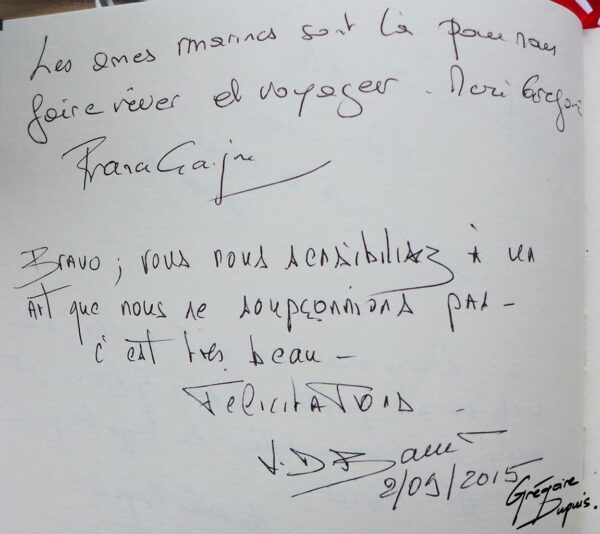 Les ames marines sont là pour nous
faire rêver et voyager. Merci Grégoire
Bravo ; vous nous sensibilisez à un
art que nous ne soupçonnions pas -
c'est très beau -
Felicitations
2/09/2015
Grégoire
Dupuis.